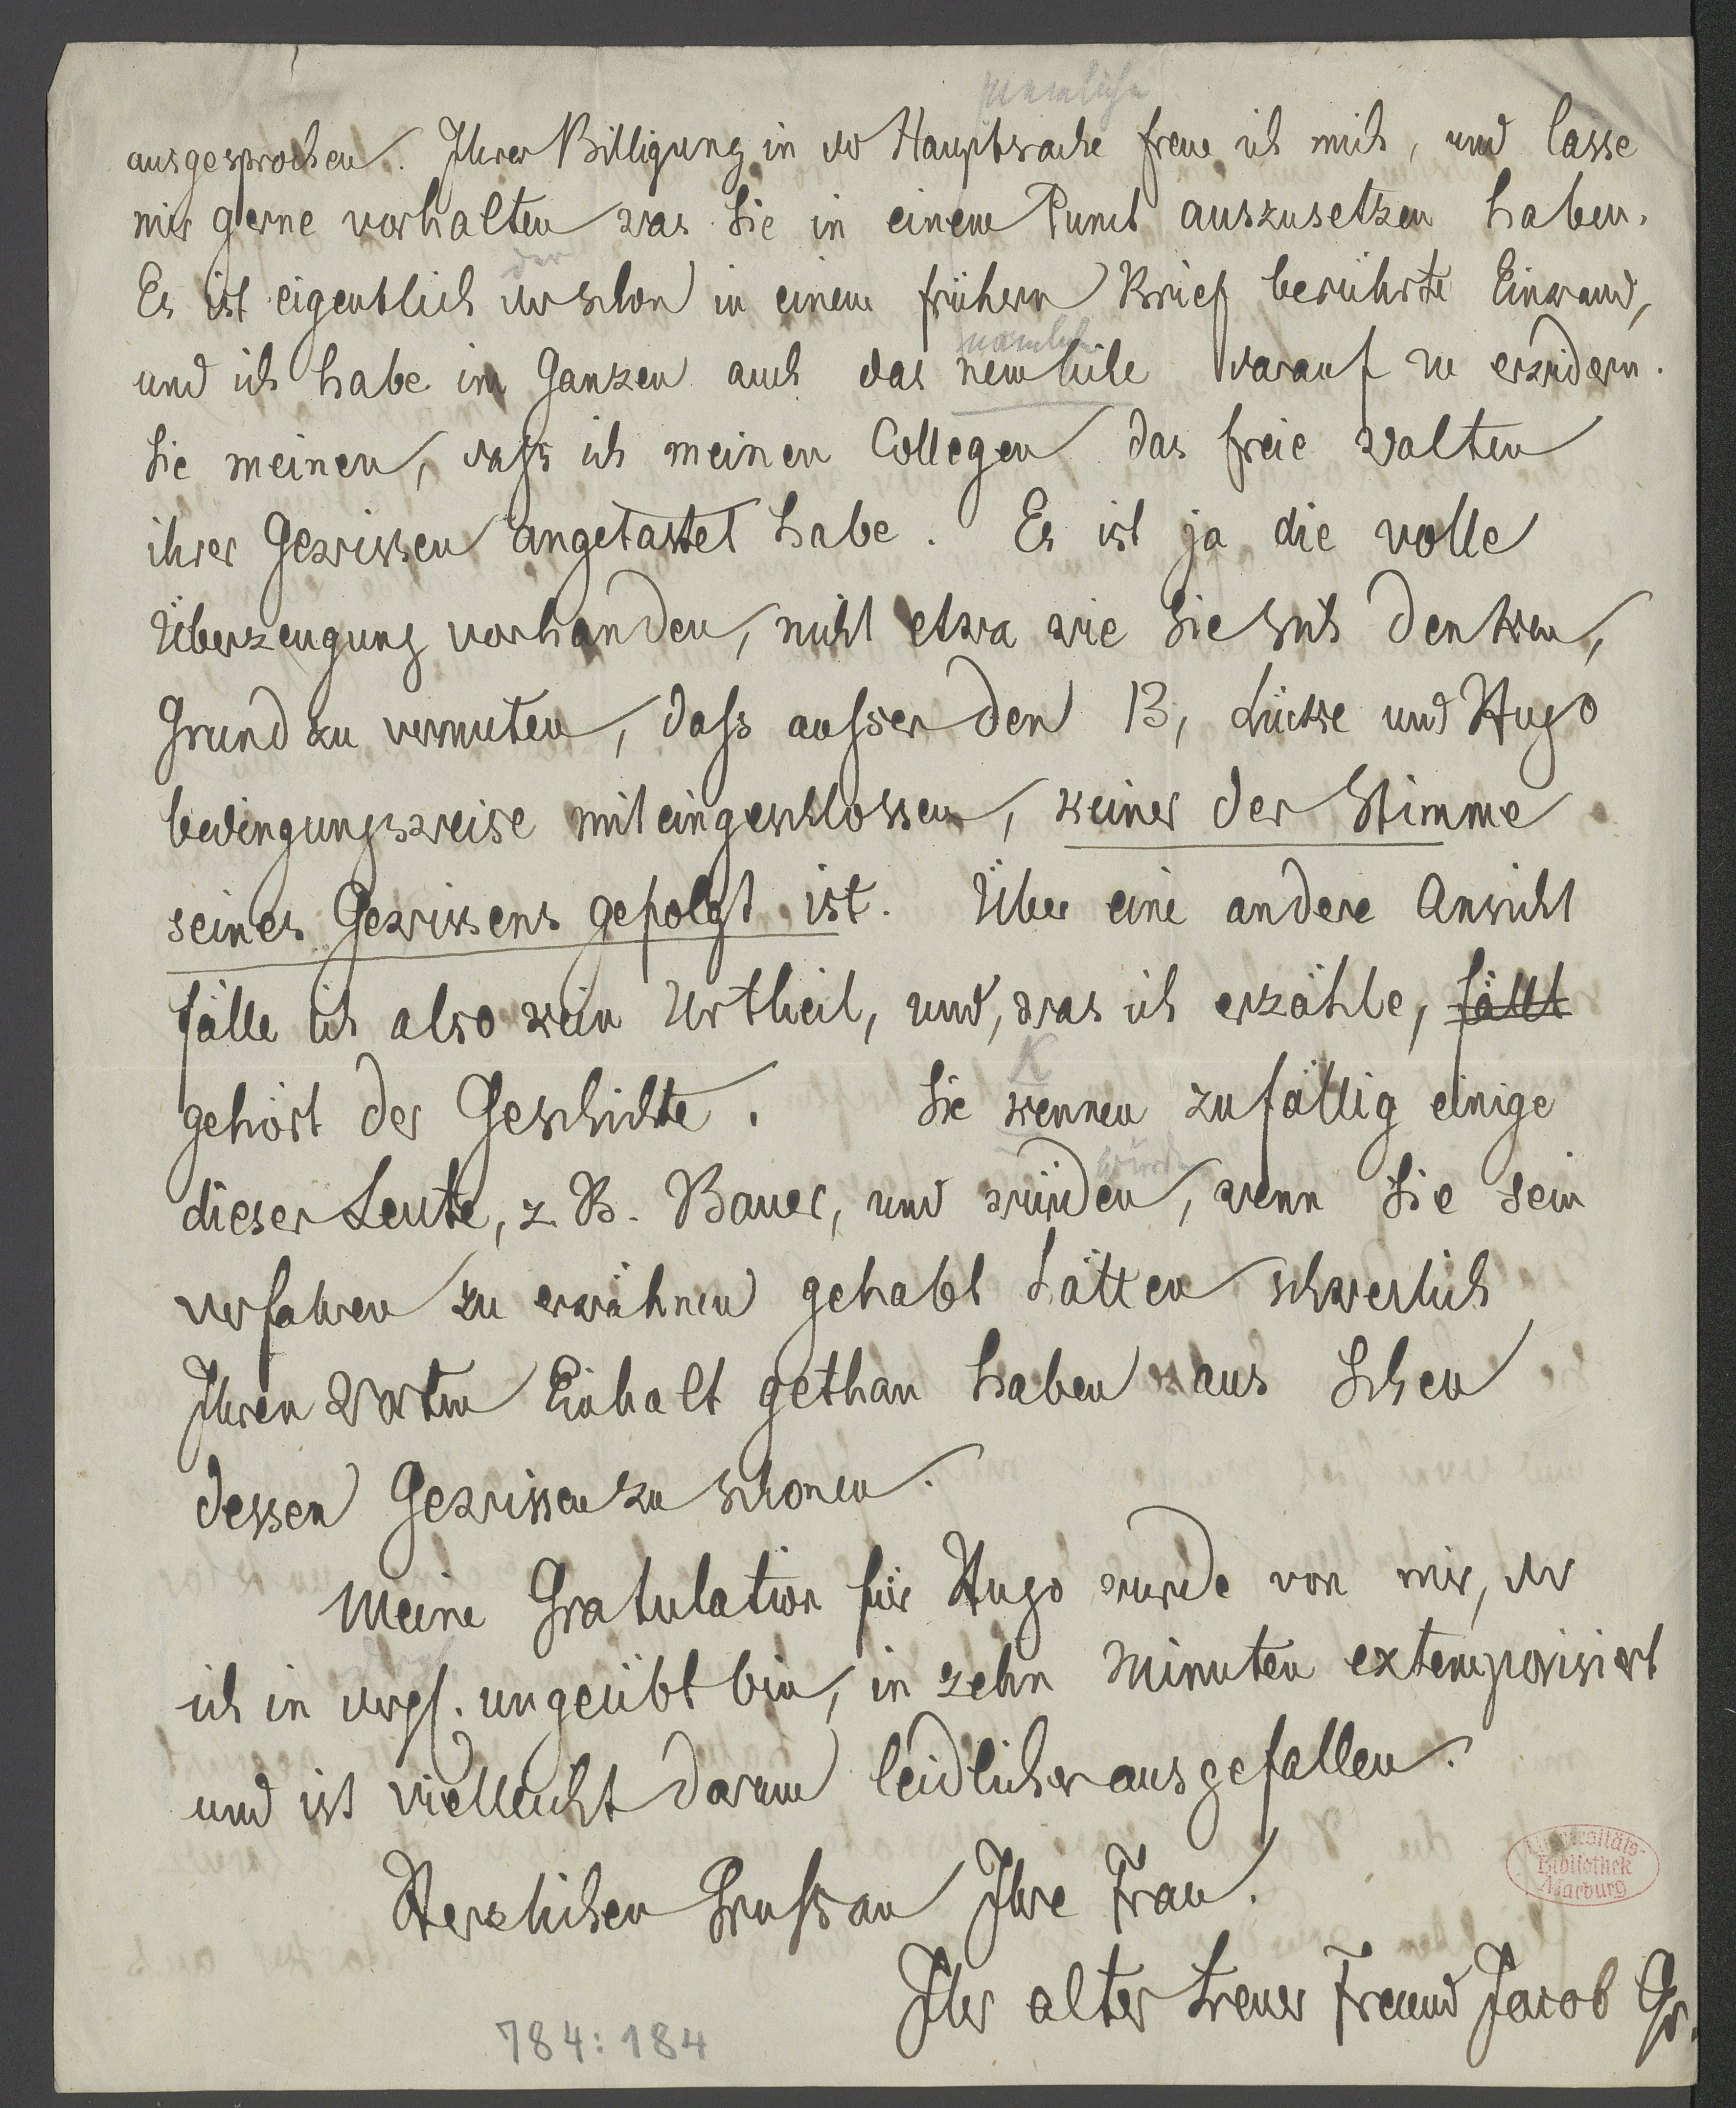 nemliche
ausgesprochen. Ihrer Billigung in der Hauptsache freue ich mich, und lasse
mir gerne vorhalten was Sie in einem Punct auszusetzen haben.
der
Es ist eigentlich der schon in einem frühern Brief berührte Einwand,
nämliche
und ich habe im Ganzen auch das nemliche darauf zu erwidern.
Sie meinen, dass ich meinen Collegen das freie walten
ihrer Gewissen angetastet habe. Es ist ja die volle
Überzeugung vorhanden, nicht etwa wie Sie sich denken,
Grund zu vermuten, dass ausser den 13, Lücke und Hugo
bedingungsweise mit eingeschlossen, keiner der Stimme
seines Gewissens gefolgt ist. Über eine andere Ansicht
fälle ich also kein Urtheil, und, was ich erzähle, fällt
K
gehört der Geschichte. Sie kennen zufällig einige
würden
dieser Leute, z. B. Bauer, und würden, wenn Sie sein
verfahren zu erwähnen gehabt hätten schwerlich
Ihren Worten Einhalt gethan haben aus Scheu
dessen Gewissen zu schonen.
Meine Gratulation für Hugo wurde von mir, der
ich in dergl. ungeübt bin, in zehn Minuten extemporisiert
und ist vielleicht darum leidlicher ausgefallen.
Herzlichen Gruss an Ihre Frau.
Ihr alter treuer Freund Jacob Gr.
Universitäts-
Bibliothek
Marburg
784:184